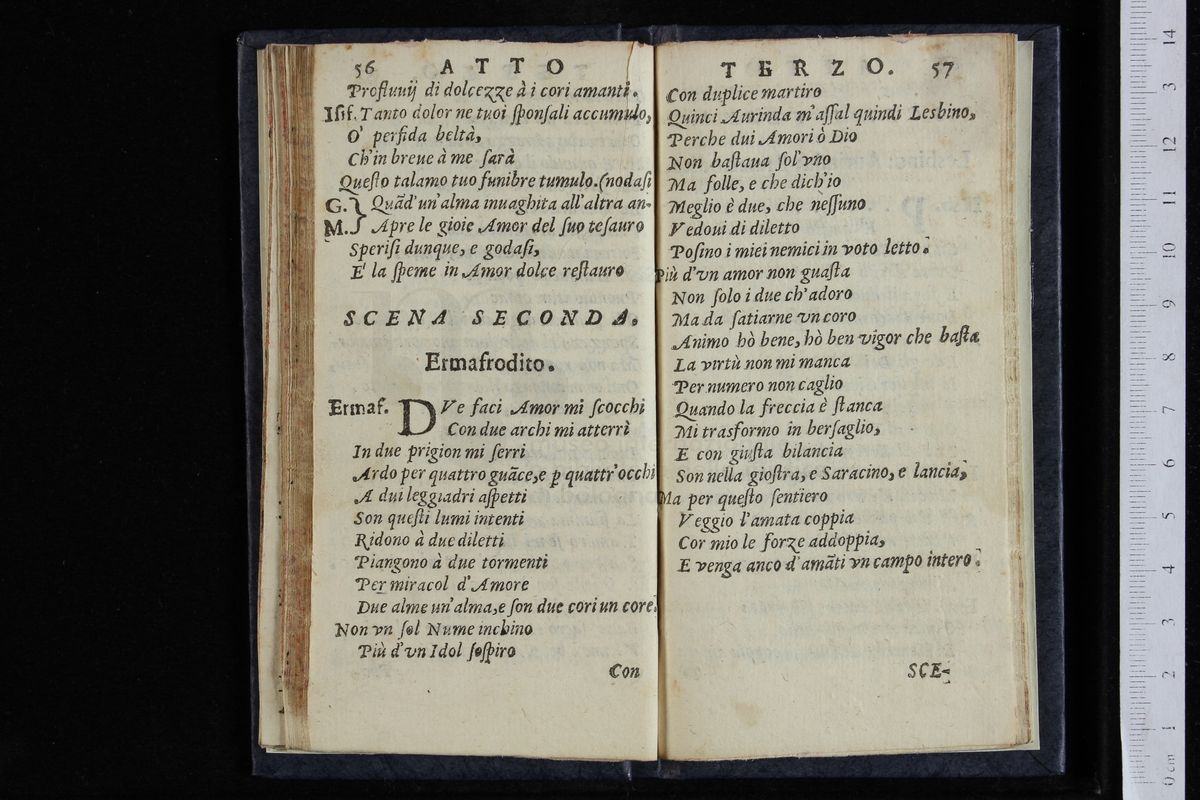 56 ATTO
Profluuij di dolcezze à i cori amanti.
Iſif. Tanto dolor ne tuoi ſponſali accumulo,
O' perfida beltà,
Ch'in breue à me ſarà
Queſto talamo tuo funibre tumulo. (nodaſi
G. Quãd'un'alma inuaghita all'altra an-
M. Apre le gioie Amor del ſuo teſauro
Speriſi dunque, e godaſi,
E' la ſpeme in Amor dolce reſtauro
SCENA SECONDA.
Ermafrodito.
Ermaf. DVe faci Amor mi ſcocchi
Con due archi mi atterrì
In due prigion mi ſerri
Ardo per quattro guãce, e p quattr'occhi
A dui leggiadri aſpetti
Son queſti lumi intenti
Ridono à due diletti
Piangono à due tormenti
Per miracol d'Amore
Due alme un'alma, e ſon due cori un core.
Non vn ſol Nume inchino
Più d'vn Idol ſoſpiro
Con
TERZO. 57
Con duplice martiro
Quinci Aurinda m'aſſal quindi Lesbino,
Perche dui Amori ò Dio
Non baſtaua ſol'vno
Ma folle, e che dich'io
Meglio è due, che neſſuno
Vedoui di diletto
Poſino i miei nemici in voto letto.
Più d'vn amor non guaſta
Non ſolo i due ch'adoro
Ma da ſatiarne vn coro
Animo hò bene, hò ben vigor che baſta
La virtù non mi manca
Per numero non caglio
Quando la freccia è ſtanca
Mi trasformo in berſaglio,
E con giuſta bilancia
Son nella gioſtra, e Saracino, e lancia,
Ma per queſto ſentiero
Veggio l'amata coppia
Cor mio le forze addoppia,
E venga anco d'amãti vn campo intero.
SCE-
14
3
12
11
10
9
8
7
6
5
4
3
2
1
0 cm